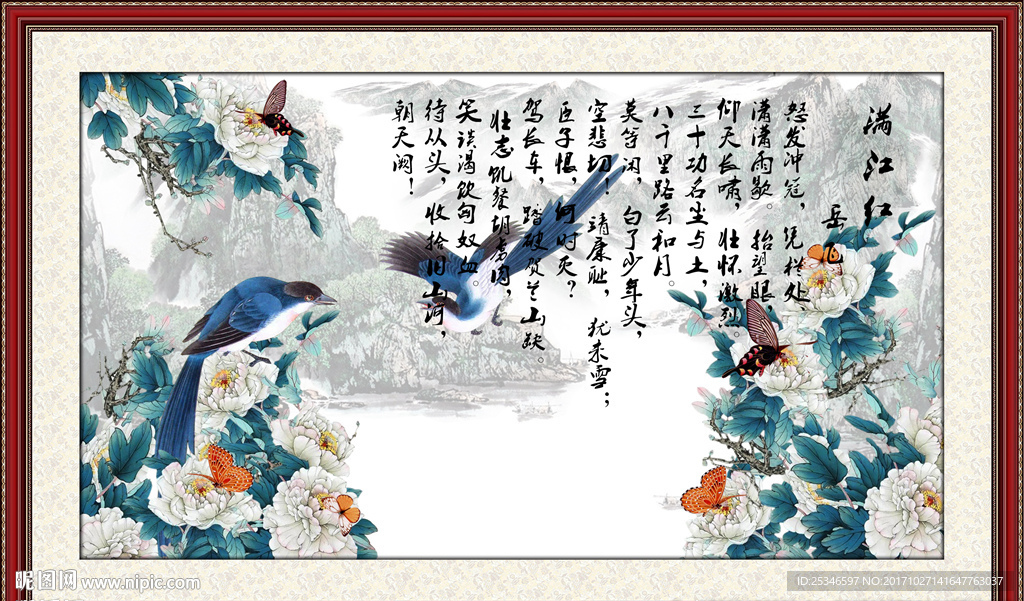 满江红
岳飞
怒发冲冠，凭栏处、
潇潇雨歇。抬望眼，
仰天长啸，壮怀激烈。
三十功名尘与土，
八千里路云和月。
莫等闲，白了少年头，
空悲切！靖康耻，犹未雪；
臣子恨，何时灭？
驾长车，踏破贺兰山缺。
壮志饥餐胡虏肉，
笑谈渴饮匈奴血。
待从头，收拾旧山河，
朝天阙！
昵图网 www.nipic.com
ID:25346597 NO:20171027141647763037